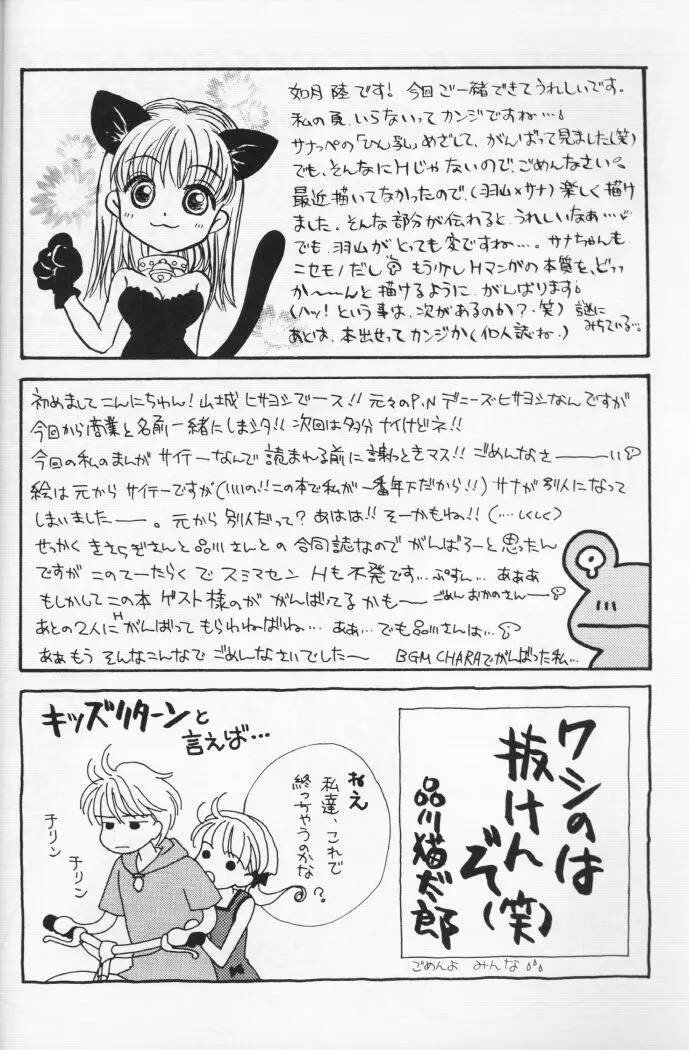 如月 陸です! 今回ご一緒できてうれしいです。
私の頁、いらないってカンジですね…!
サナッペの「ひん乳」めざして、がんばって見ました(笑)
でも、そんなにHじゃないので、ごめんなさい。
最近描いてなかったので、(羽山×サナ)楽しく描け
ました。そんな部分が伝わると、うれしいなぁ…
でも、羽山がとっても変ですね…。サナちゃんも
ニセモノだし もう少しHマンガの本質を、どっ
か〜〜んと描けるように、がんばります
(ハッ!という事は、次があるのか?・笑) 謎に
みちている…。
あとは、本出せってカンジか(個人誌ね。)
初めましてこんにちゎん! 山城 ヒサヨシでース!! 元々のP.N デニーズヒサヨシなんですが
今回から商業と名前一緒にしまシタ!! 次回は多分ナイけどネ!!
今回の私のまんが サイテーなんで 読まれる前に謝っときマス!! ごめんなさ───いい
絵は元からサイテーですが(いいの!!この本で私が一番年下だから!!) サナが別人になって
しまいました──。元から別人だって? あはは!! そーかもね!! (…しくしく)
せっかく きさらぎさんと品川さんとの 合同誌なので がんばろーと思ったん
ですが このてーたらくで スミマセン Hも不発です…ぷすん… あぁぁ
もしかしてこの本 ゲスト様のが がんばってるかも〜 ごめんおかのさん──
あとの2人にH がんばってもらわねばいね… ああ… でも品川さんは…
あぁもう そんなこんなで ごめんなさいでした〜 BGM CHARAでがんばった私…
キッズリターンと
言えば…
ねえ
私達、これで
終っちゃうのかな
?
チリン
チリン
ワシのは
抜けん
ぞ(笑)
品川猫太郎
ごめんよ みんな